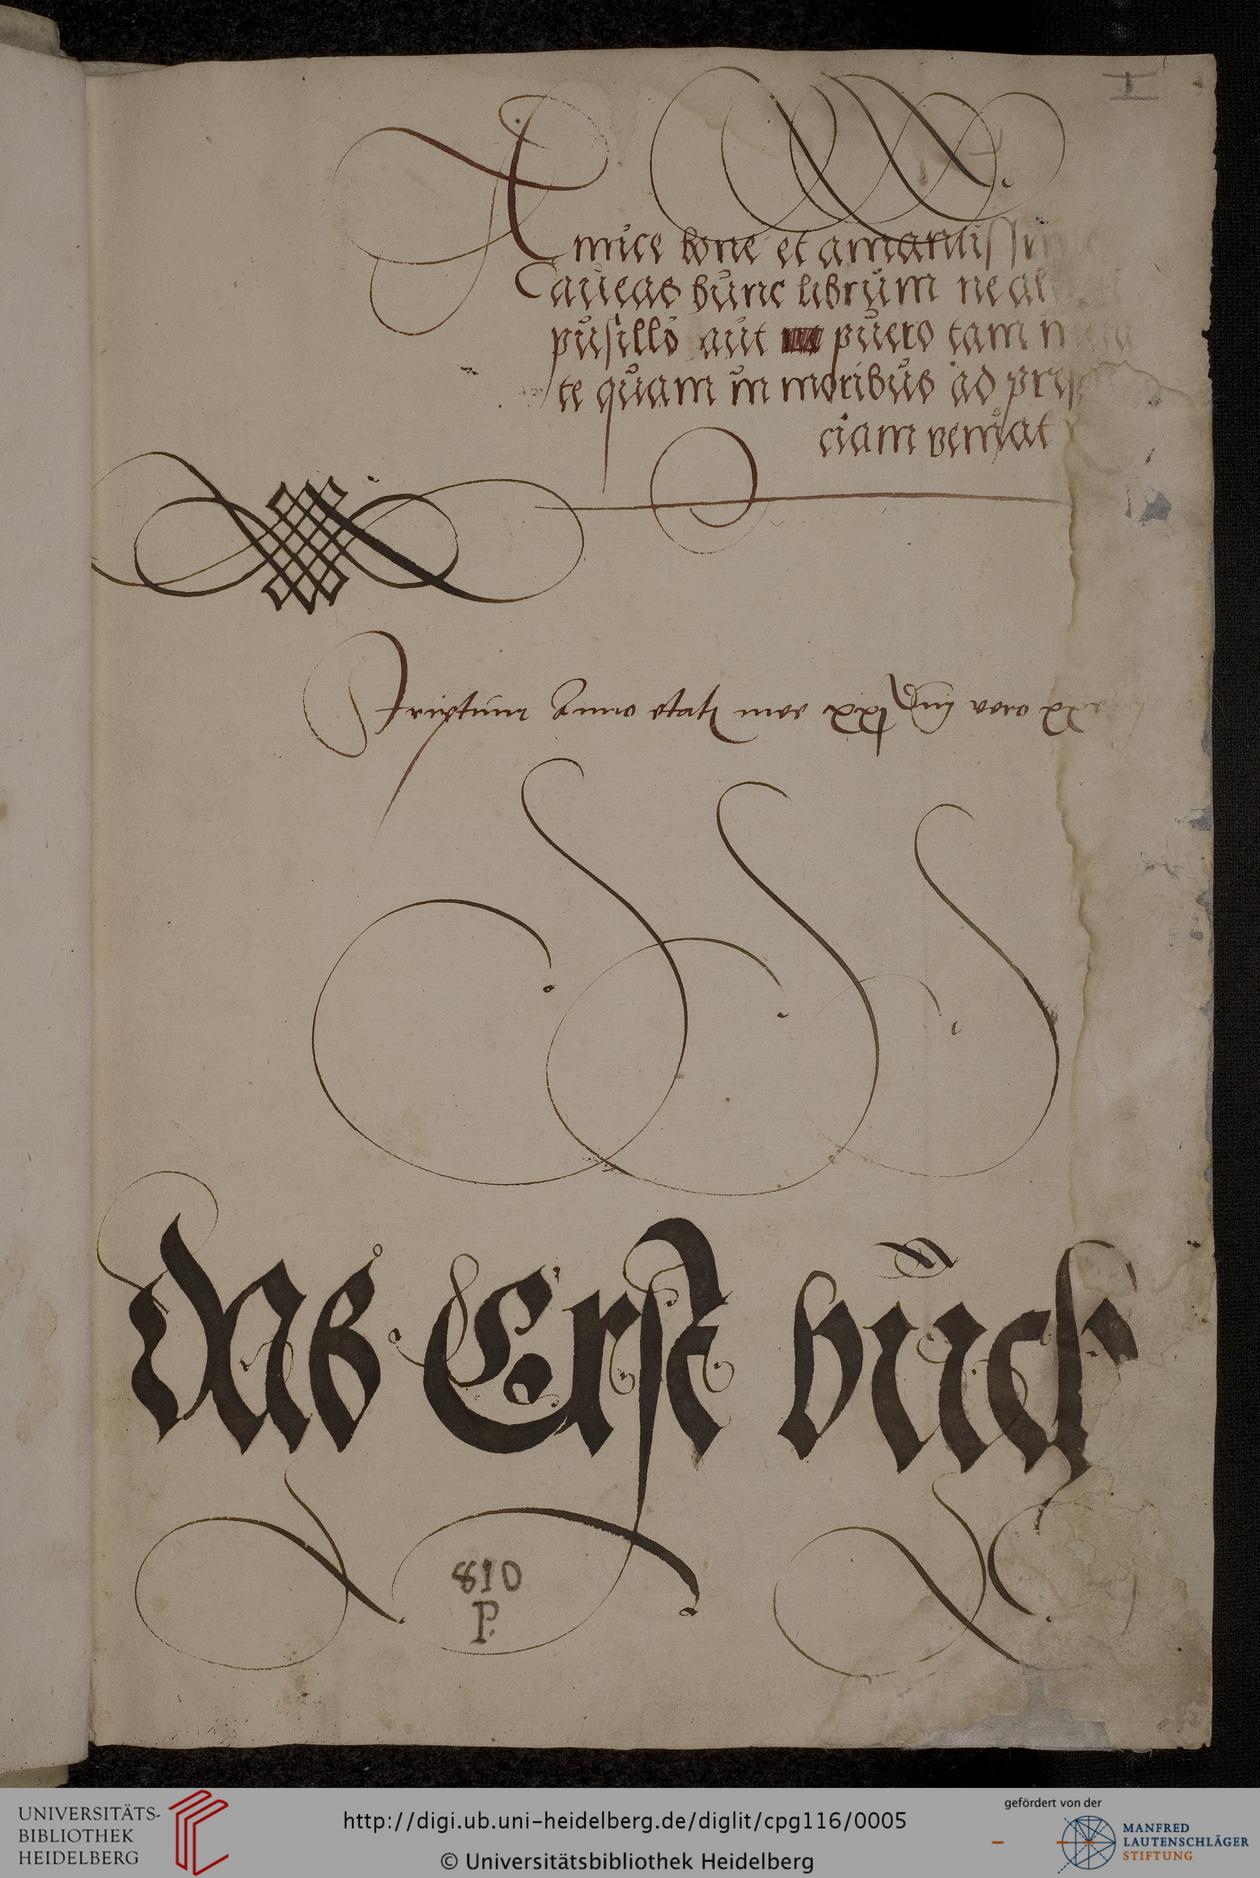 I
Amice bone et amantissime
Caueas hunc librum ne al
pusillo aut puero tam
te quam in moribus ad pres
ciam veniat
Scriptum Anno etatis mee xxj vero
das Erst buch
810
P.
UNIVERSITÄTS-
BIBLIOTHEK
HEIDELBERG
http://digi.ub.uni-heidelberg.de/diglit/cpg116/0005
© Universitätsbibliothek Heidelberg
gefördert von der
MANFRED
LAUTENSCHLÄGER
STIFTUNG